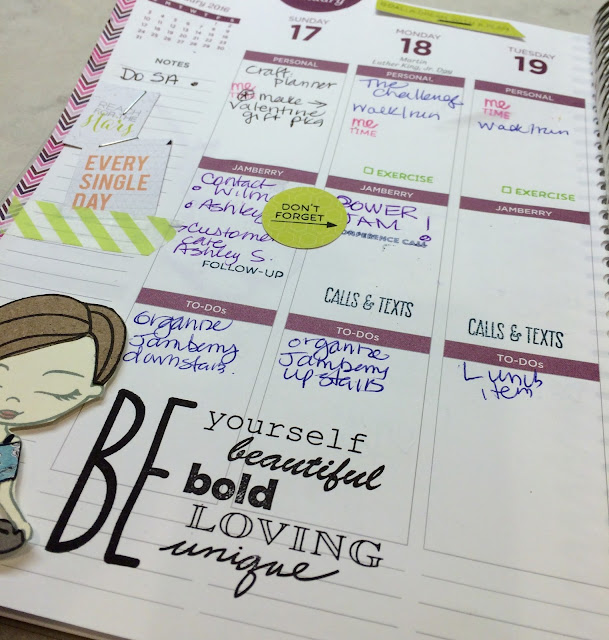 January 2016
NOTES
DO SA.
REACH
stars
EVERY
SINGLE
DAY
SUNDAY
17
PERSONAL
Craft
planner
me
make →
Valentine
gift pkg
JAMBERRY
Contact
Wilm
Ashley
Customer
care
Ashley S.
FOLLOW-UP
TO-DOs
organize
Jamberry
downstairs.
DON'T
FORGET
MONDAY
18
Martin
Luther King, Jr. Day
PERSONAL
The
challenge
Walk/run
me
TIME
EXERCISE
JAMBERRY
POWER
JAM!
CONFERENCE CALL
CALLS & TEXTS
TO-DOs
organize
Jamberry
upstairs
TUESDAY
19
PERSONAL
me
TIME
Walk/run
EXERCISE
JAMBERRY
CALLS & TEXTS
TO-DOs
item
BE
yourself
beautiful
bold
LOVING
unique